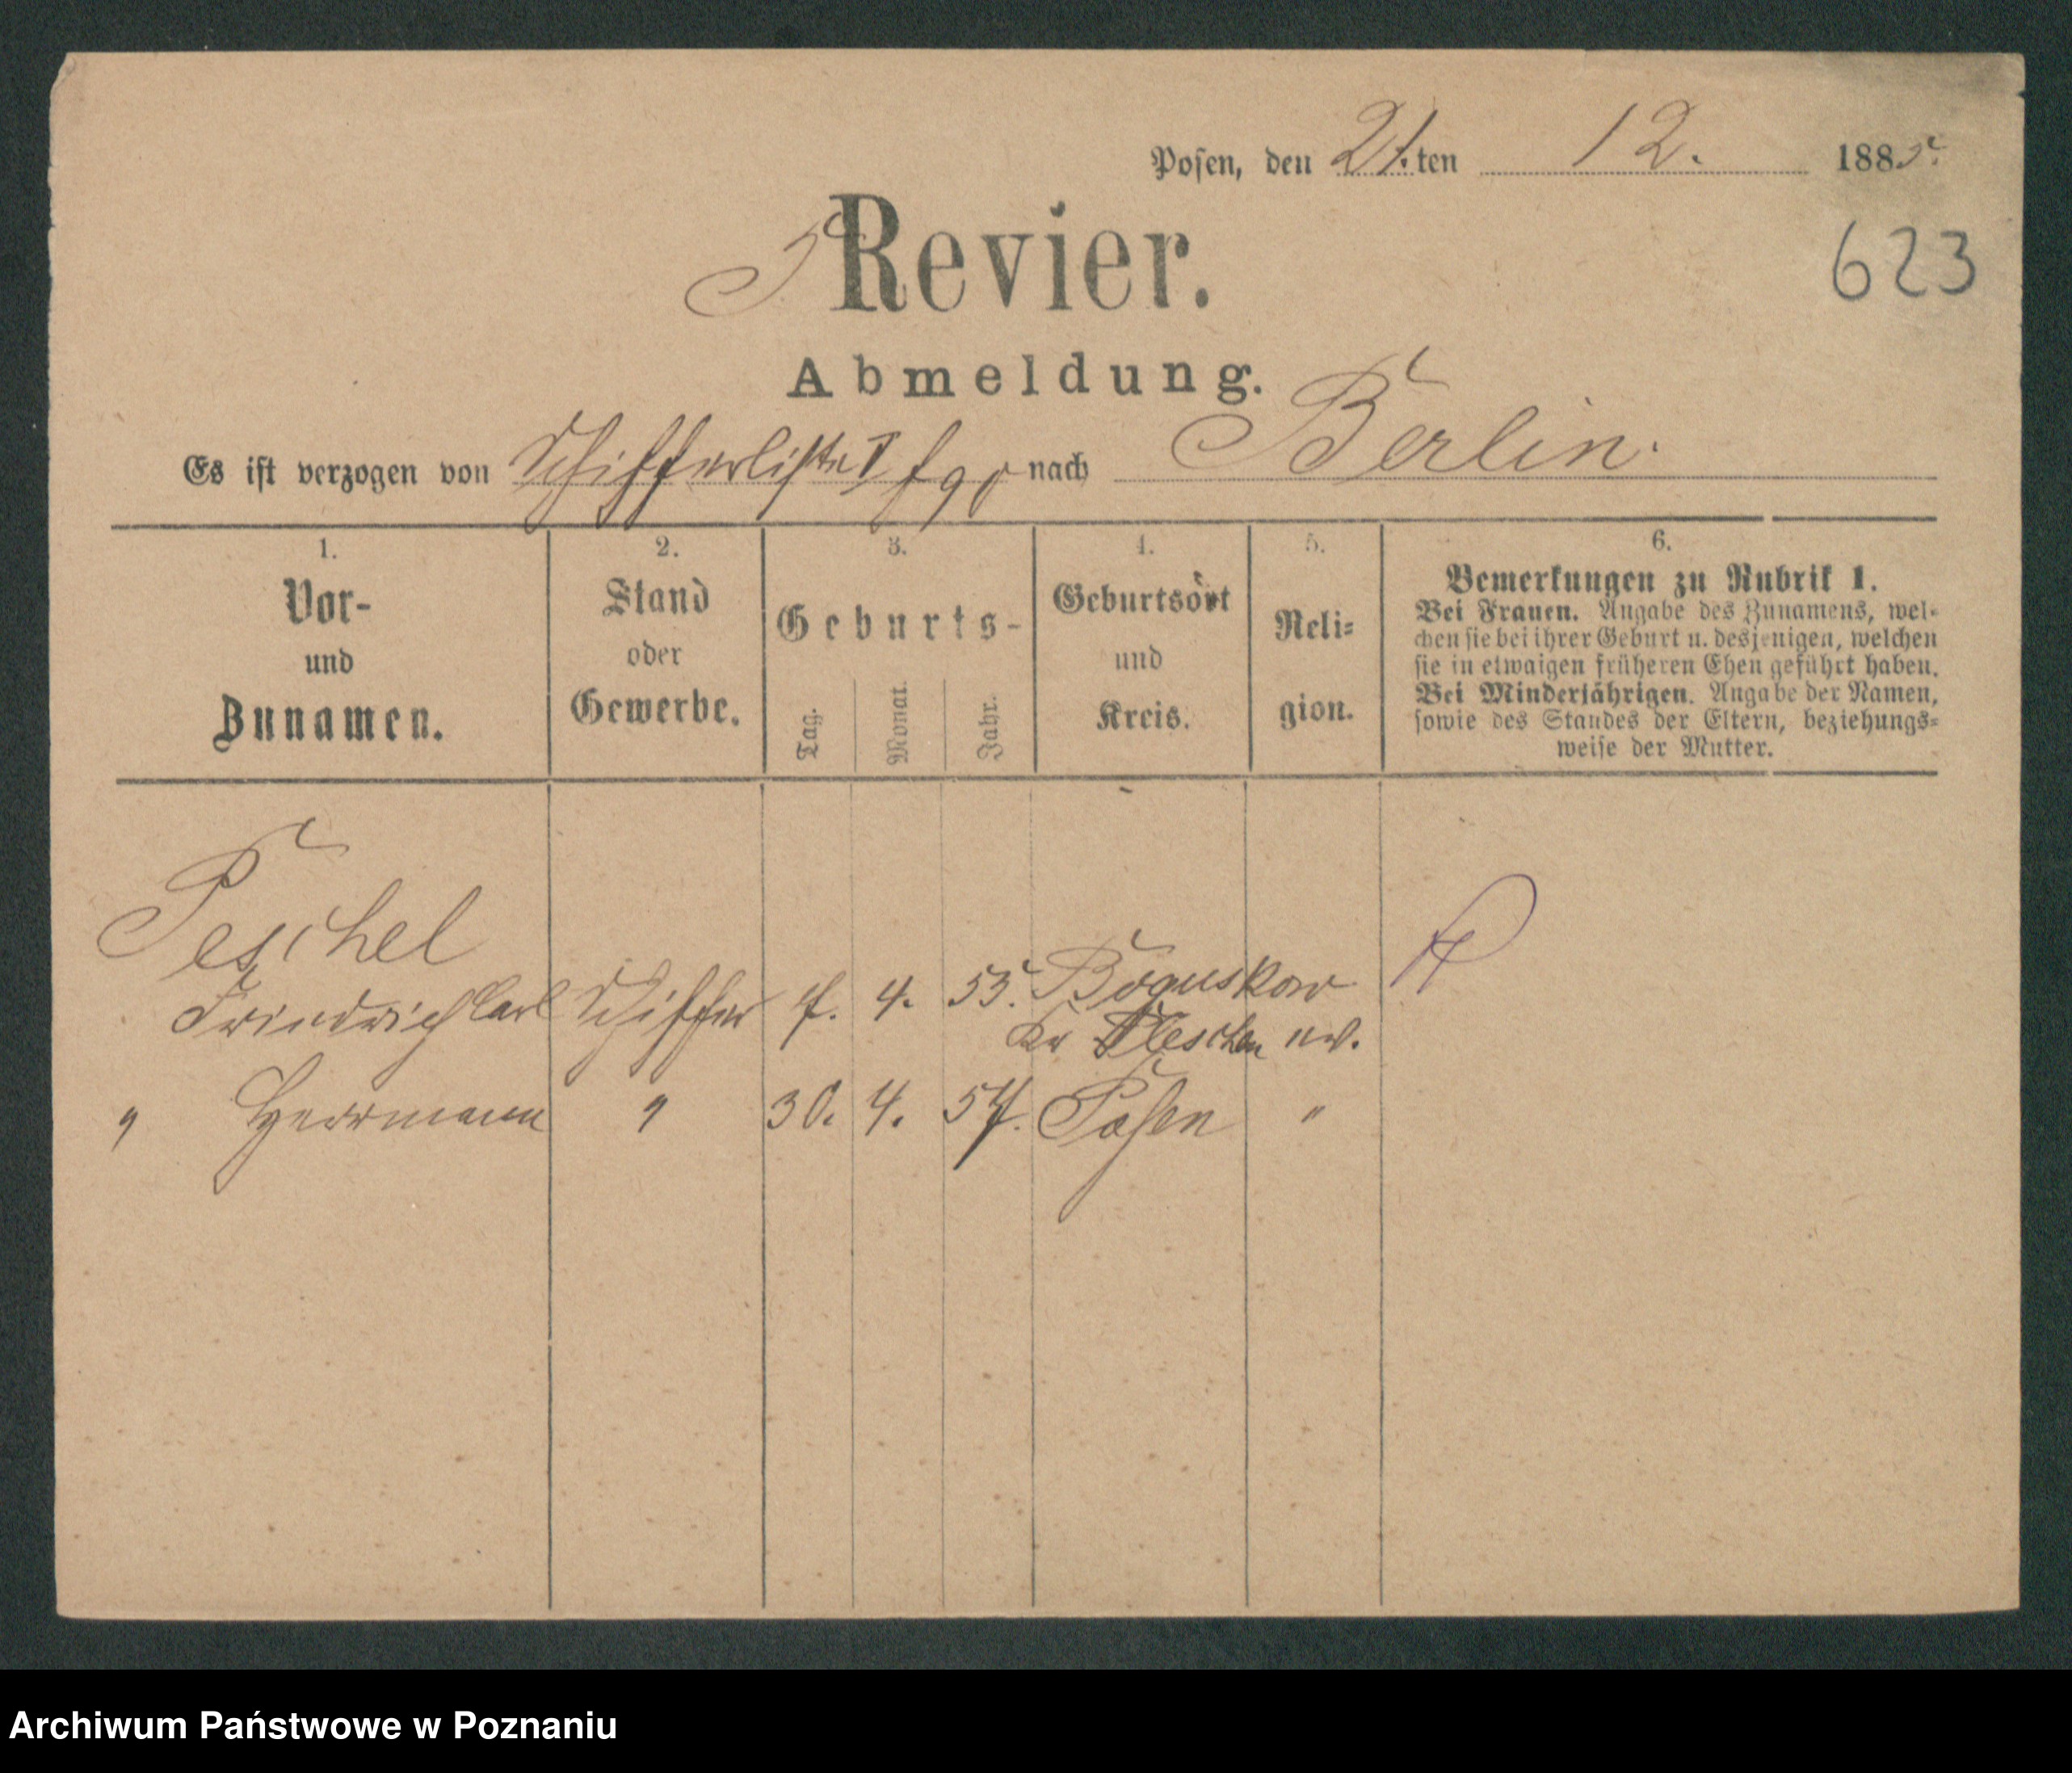 Posen, den 21.ten 12. 1885.
623
5 Revier.
Abmeldung.
Es ist verzogen von Schifferliste I f 90 nach Berlin.
1. 2. 3. 4. 5. 6.
Vor- und Zunamen.
Stand oder Gewerbe.
Geburts-
Tag. Monat. Jahr.
Geburtsort und Kreis.
Reli-
gion.
Bemerkungen zu Rubrik 1.
Bei Frauen. Angabe des Zunamens, wel-
chen sie bei ihrer Geburt u. desjenigen, welchen
sie in etwaigen früheren Ehen geführt haben.
Bei Minderjährigen. Angabe der Namen,
sowie des Standes der Eltern, beziehungs-
weise der Mutter.
Peschel
Friedrich Carl Schiffer 7. 4. 55. Boguskow
Kr Pleschen ev.
" Herrmann " 30. 4. 57. Posen "
Archiwum Państwowe w Poznaniu